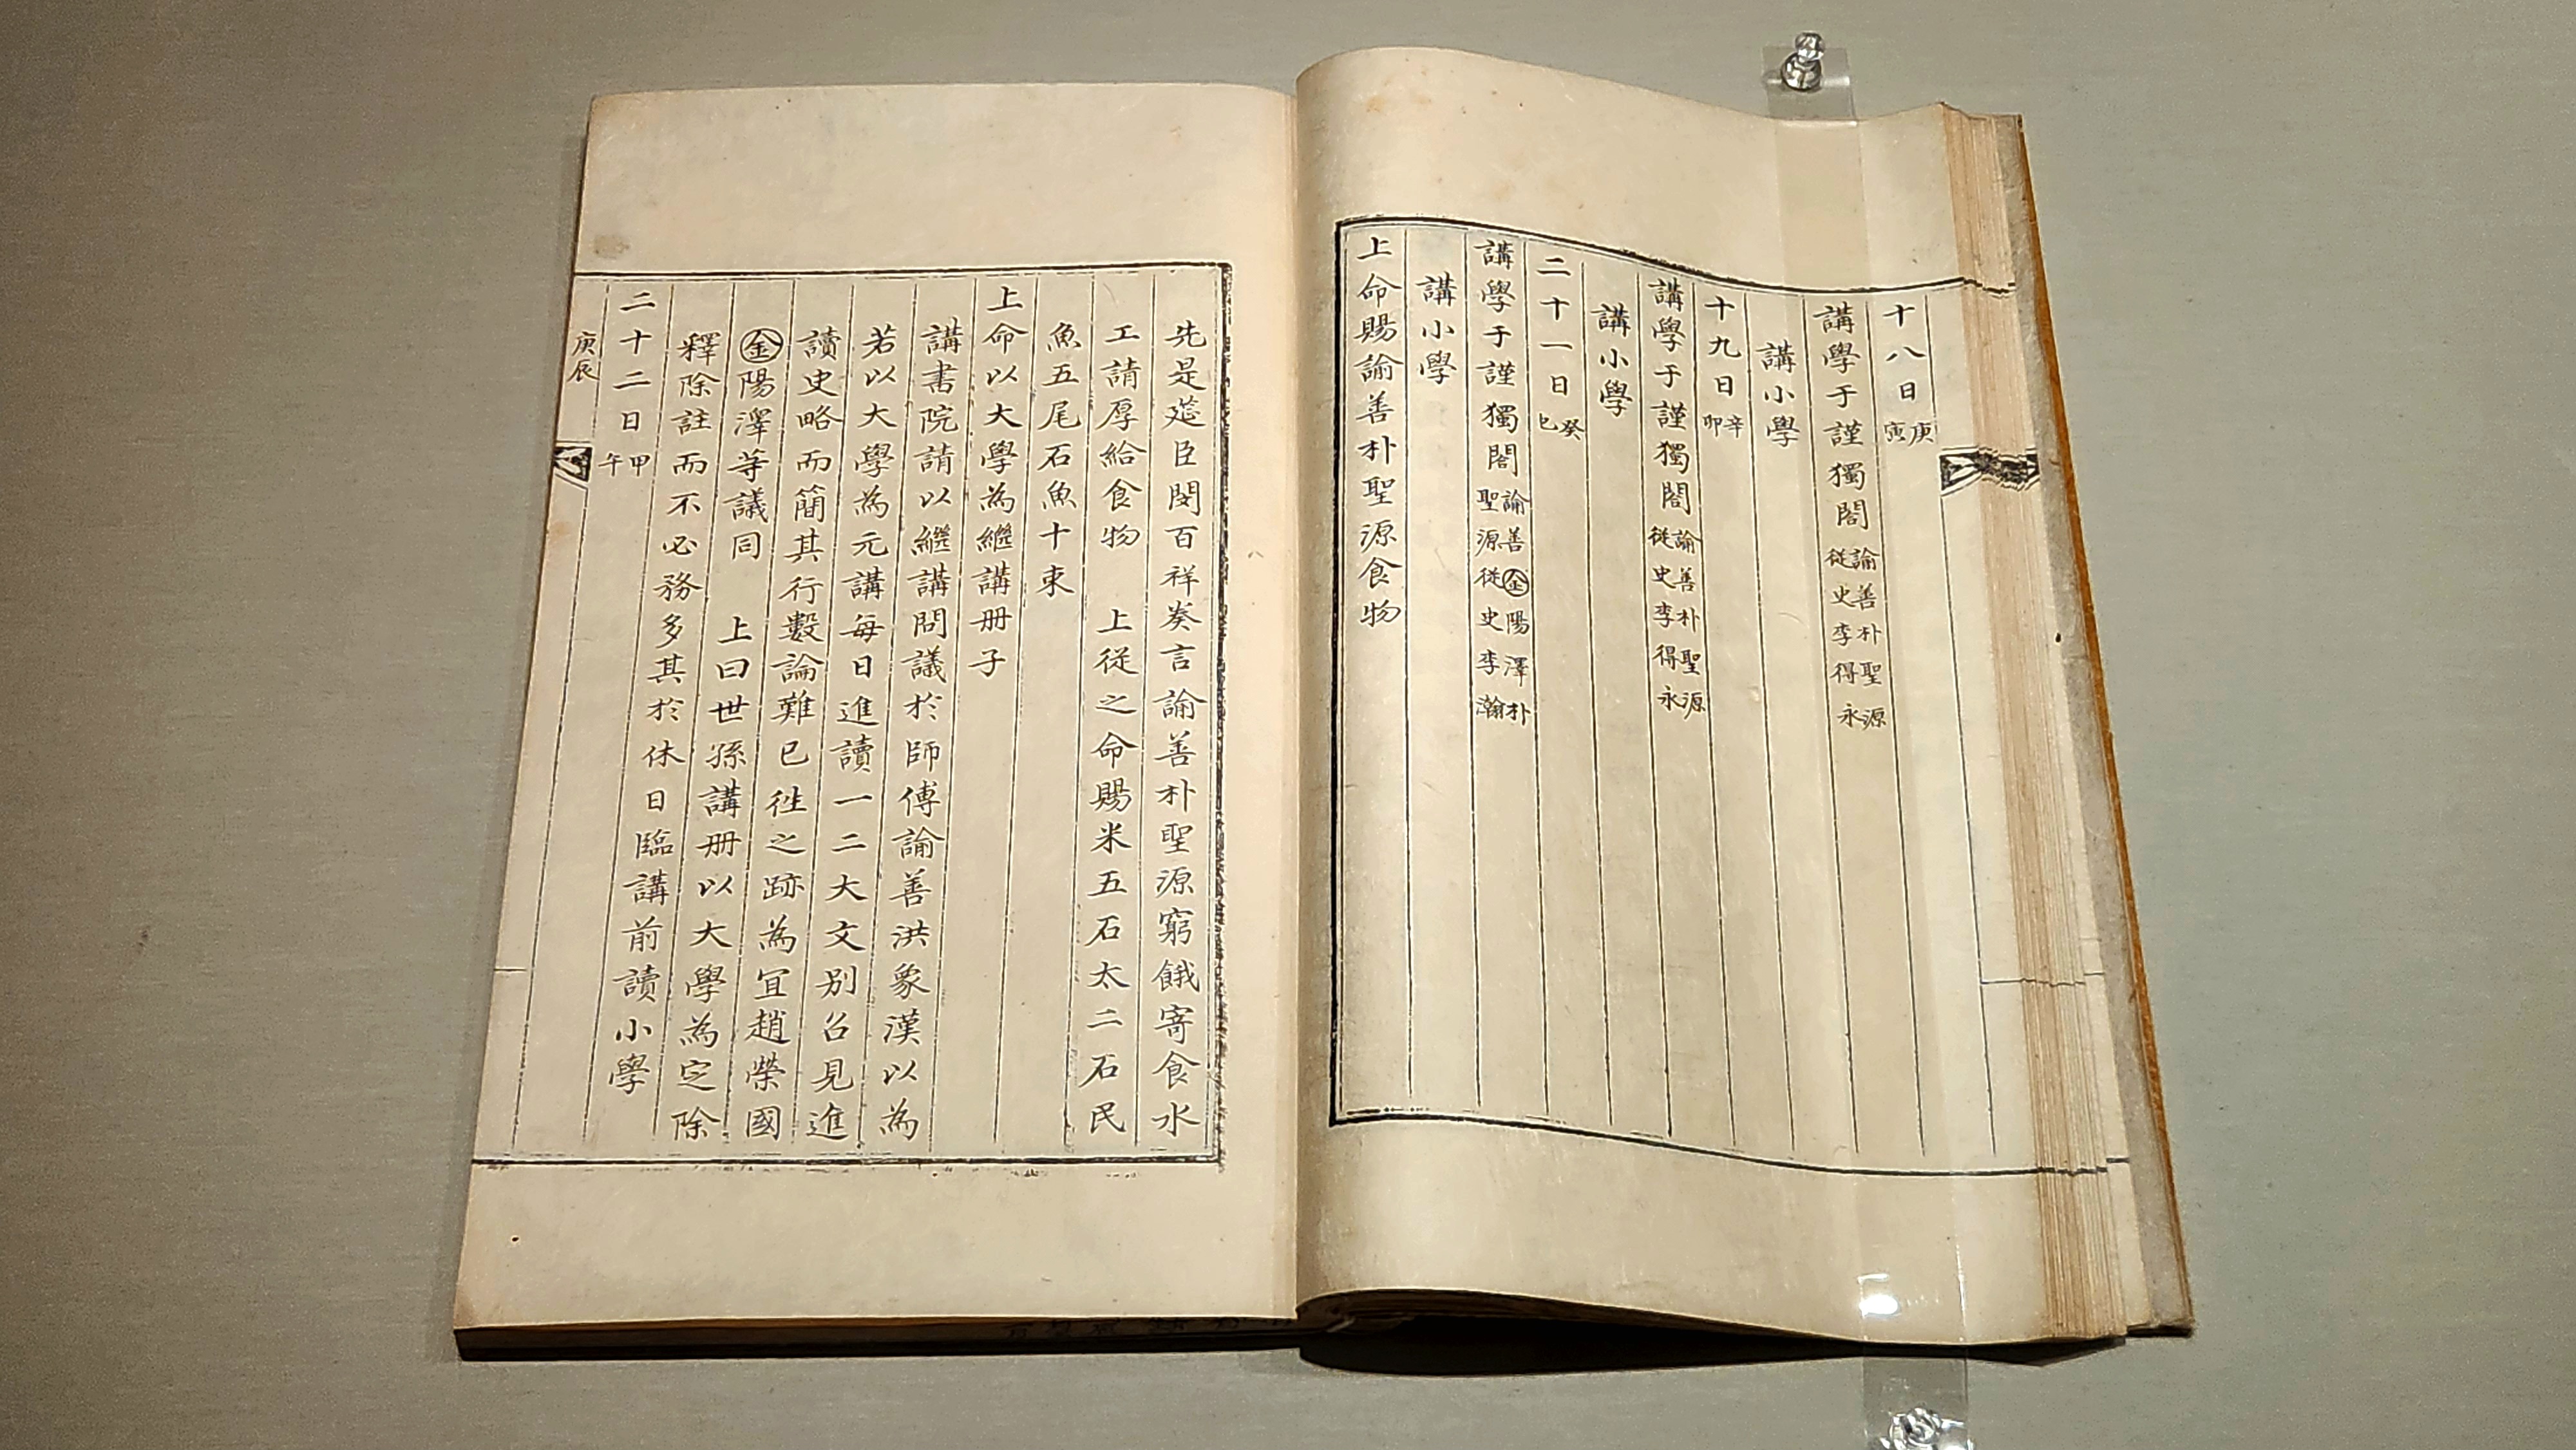 十八日庚寅
講學于謹獨閤諭善朴聖源從史李得永
講小學
十九日辛卯
講學于謹獨閤諭善朴聖源從史李得永
講小學
二十一日癸巳
講學于謹獨閤諭善金陽澤朴聖源從史李瀚
講小學
上命賜諭善朴聖源食物
先是筵臣閔百祥奏言諭善朴聖源窮餓寄食水
工請厚給食物 上從之命賜米五石太二石民
魚五尾石魚十束
上命以大學為繼講册子
講書院請以繼講問議於師傅諭善洪象漢以為
若以大學為元講每日進讀一二大文別召見進
讀史略而簡其行數論難已徃之跡為宜趙榮國
金陽澤等議同 上曰世孫講册以大學為定除
釋除註而不必務多其於休日臨講前讀小學
二十二日甲午
庚辰